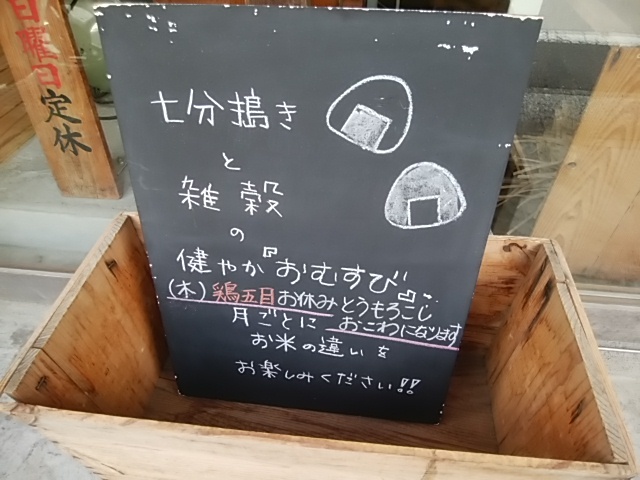 日曜日定休
七分搗き
と
雑穀
の
健やか『おむすび』
(木)鶏五目お休みとうもろこし
月ごとに おこわになります
お米の違いを
お楽しみください!!